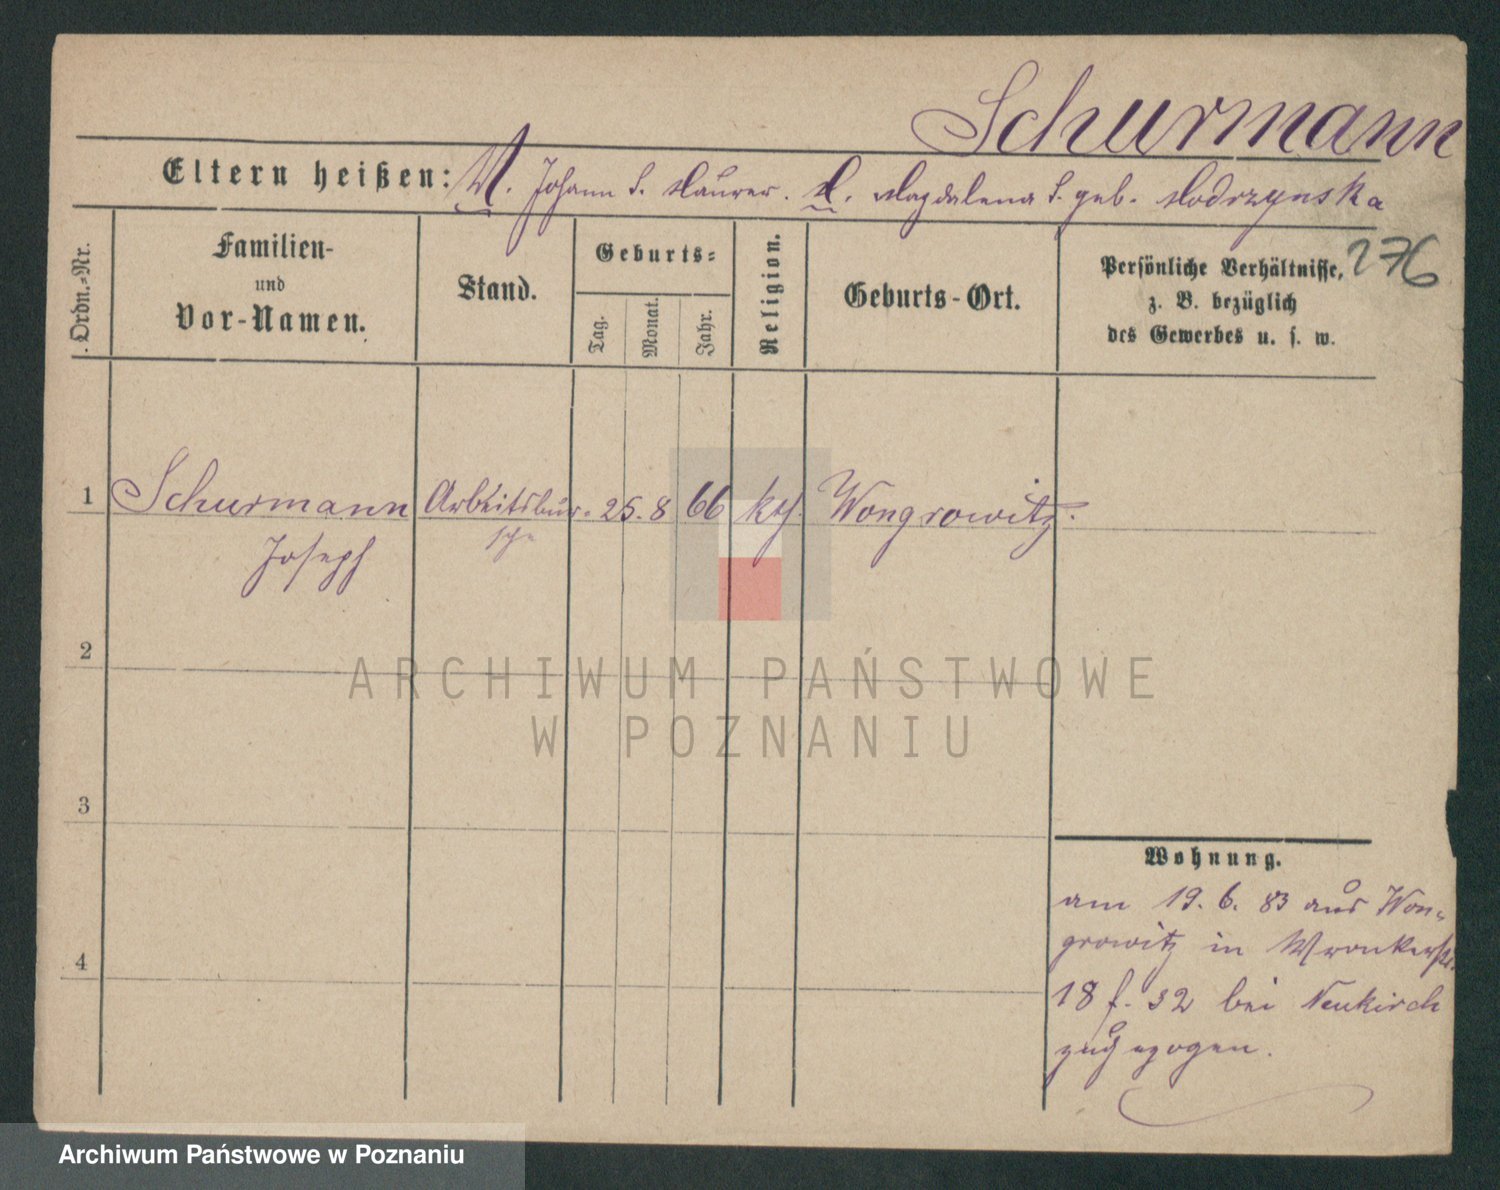 Schurmann
Eltern heißen: V. Johann S. Maurer. M. Magdalena S. geb. Modrzynska
276
Ordn.-Nr.
Familien-
und
Vor-Namen.
Stand.
Geburts-
Tag.
Monat.
Jahr.
Religion.
Geburts-Ort.
Persönliche Verhältnisse,
z. B. bezüglich
des Gewerbes u. s. w.
1 Schurmann Arbeitsbur- 25. 8 66 kth. Wongrowitz.
Joseph sche
2
3
4
Wohnung.
am 19. 6. 83 aus Won-
growitz in Wronkerstr.
18 f. 32 bei Neukirch
zugezogen.
ARCHIWUM PAŃSTWOWE
W POZNANIU
Archiwum Państwowe w Poznaniu